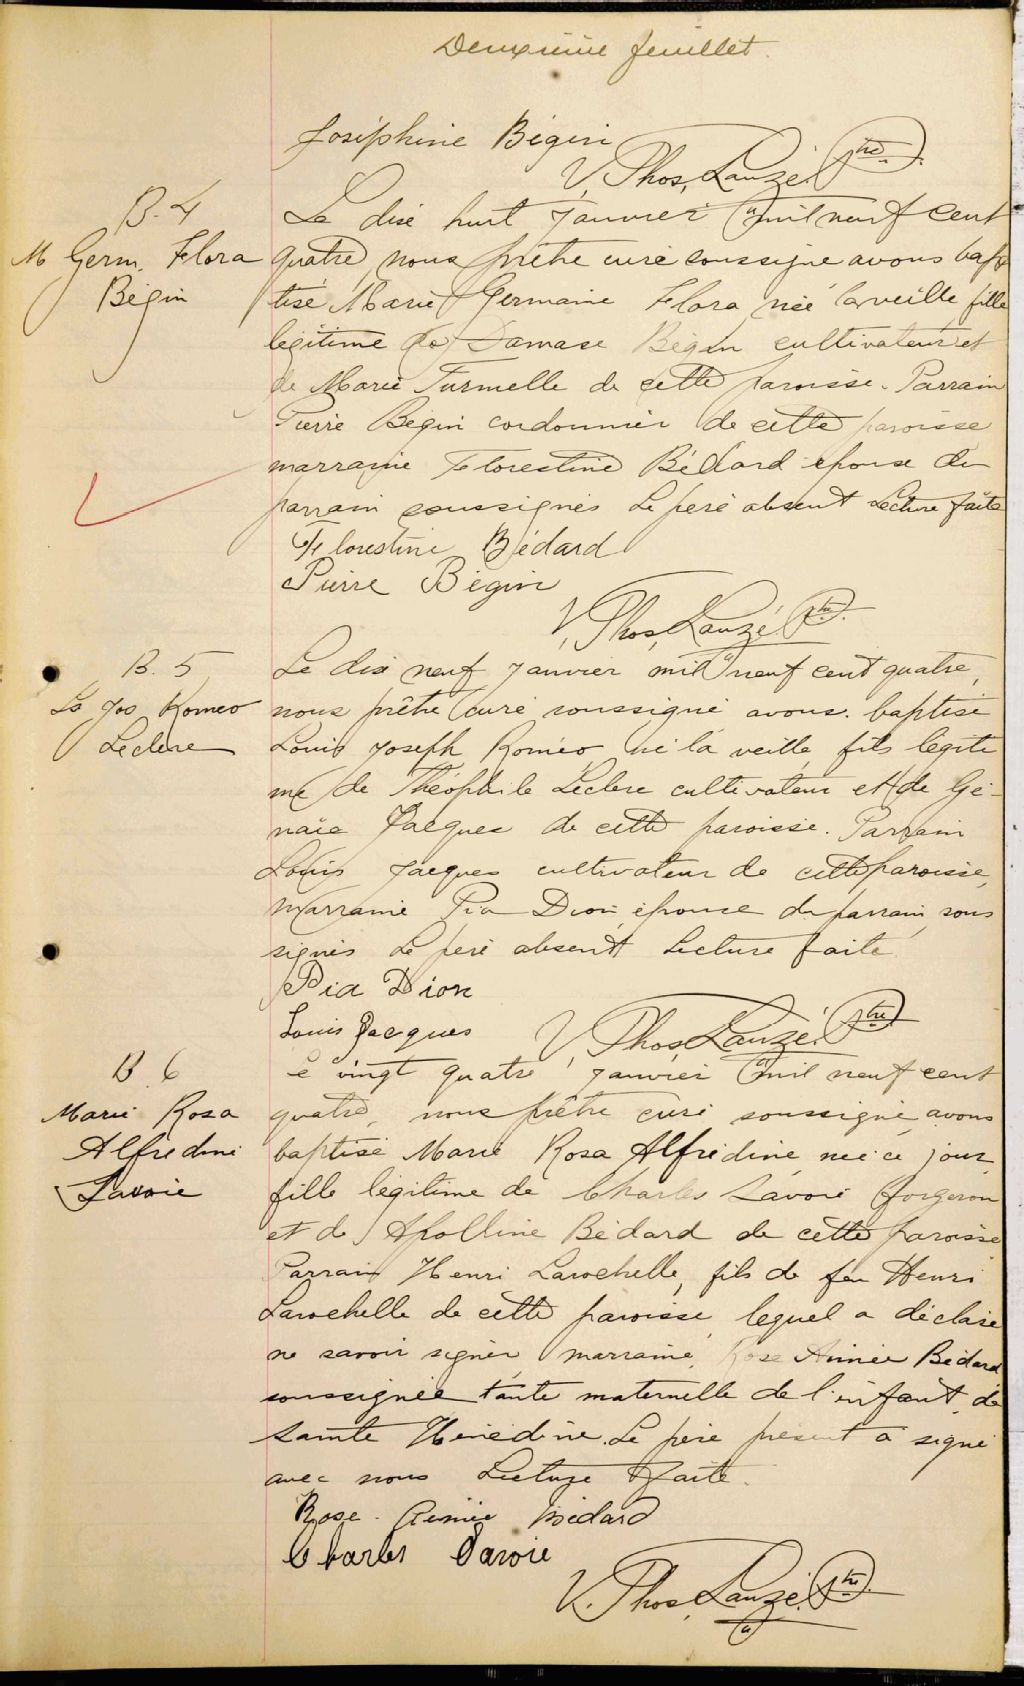 Deuxième feuillet
Joséphine Bégin
V. Thos, Lauzé. Ptre.
B. 4
M Germ. Flora
Bégin
Le dix huit janvier mil neuf cent
quatre, nous prêtre curé soussigné avons bap
tisé Marie Germaine Flora née la veille, fille
légitime de Damase Bégin cultivateur et
de Marie Turmelle de cette paroisse. Parrain
Pierre Bégin cordonnier de cette paroisse
marraine Florestine Bédard épouse du
parrain soussignés Le père absent Lecture faite
Florestine Bédard
Pierre Bégin
V, Thos, Lauzé Ptre.
B. 5
Ls Jos Roméo
Leclerc
Le dix neuf janvier mil neuf cent quatre,
nous prêtre curé soussigné avons baptisé
Louis Joseph Roméo né la veille, fils légiti
me de Théophile Leclerc cultivateur et de Gé-
naïe Jacques de cette paroisse. Parrain
Louis Jacques cultivateur de cette paroisse,
Marraine Pia Dion épouse du parrain, sous
signés Le père absent Lecture faite
Pia Dion
Louis Jacques
V, Thos, Lauzé. Ptre.
B. 6
Marie Rosa
Alfrédine
Savoie
Le vingt quatre janvier mil neuf cent
quatre, nous prêtre curé soussigné avons
baptisé Marie Rosa Alfrédine née ce jour,
fille légitime de Charles Savoie forgeron
et de Apolline Bédard de cette paroisse
Parrain Henri Larochelle, fils de feu Henri
Larochelle de cette paroisse lequel a déclaré
ne savoir signer marraine, Rose Aimée Bédard
soussignée tante maternelle de l'enfant, de
Sainte Hénédine. Le père présent a signé
avec nous Lecture faite.
Rose-Aimée Bédard
Charles Savoie
V. Thos, Lauzé. Ptre.